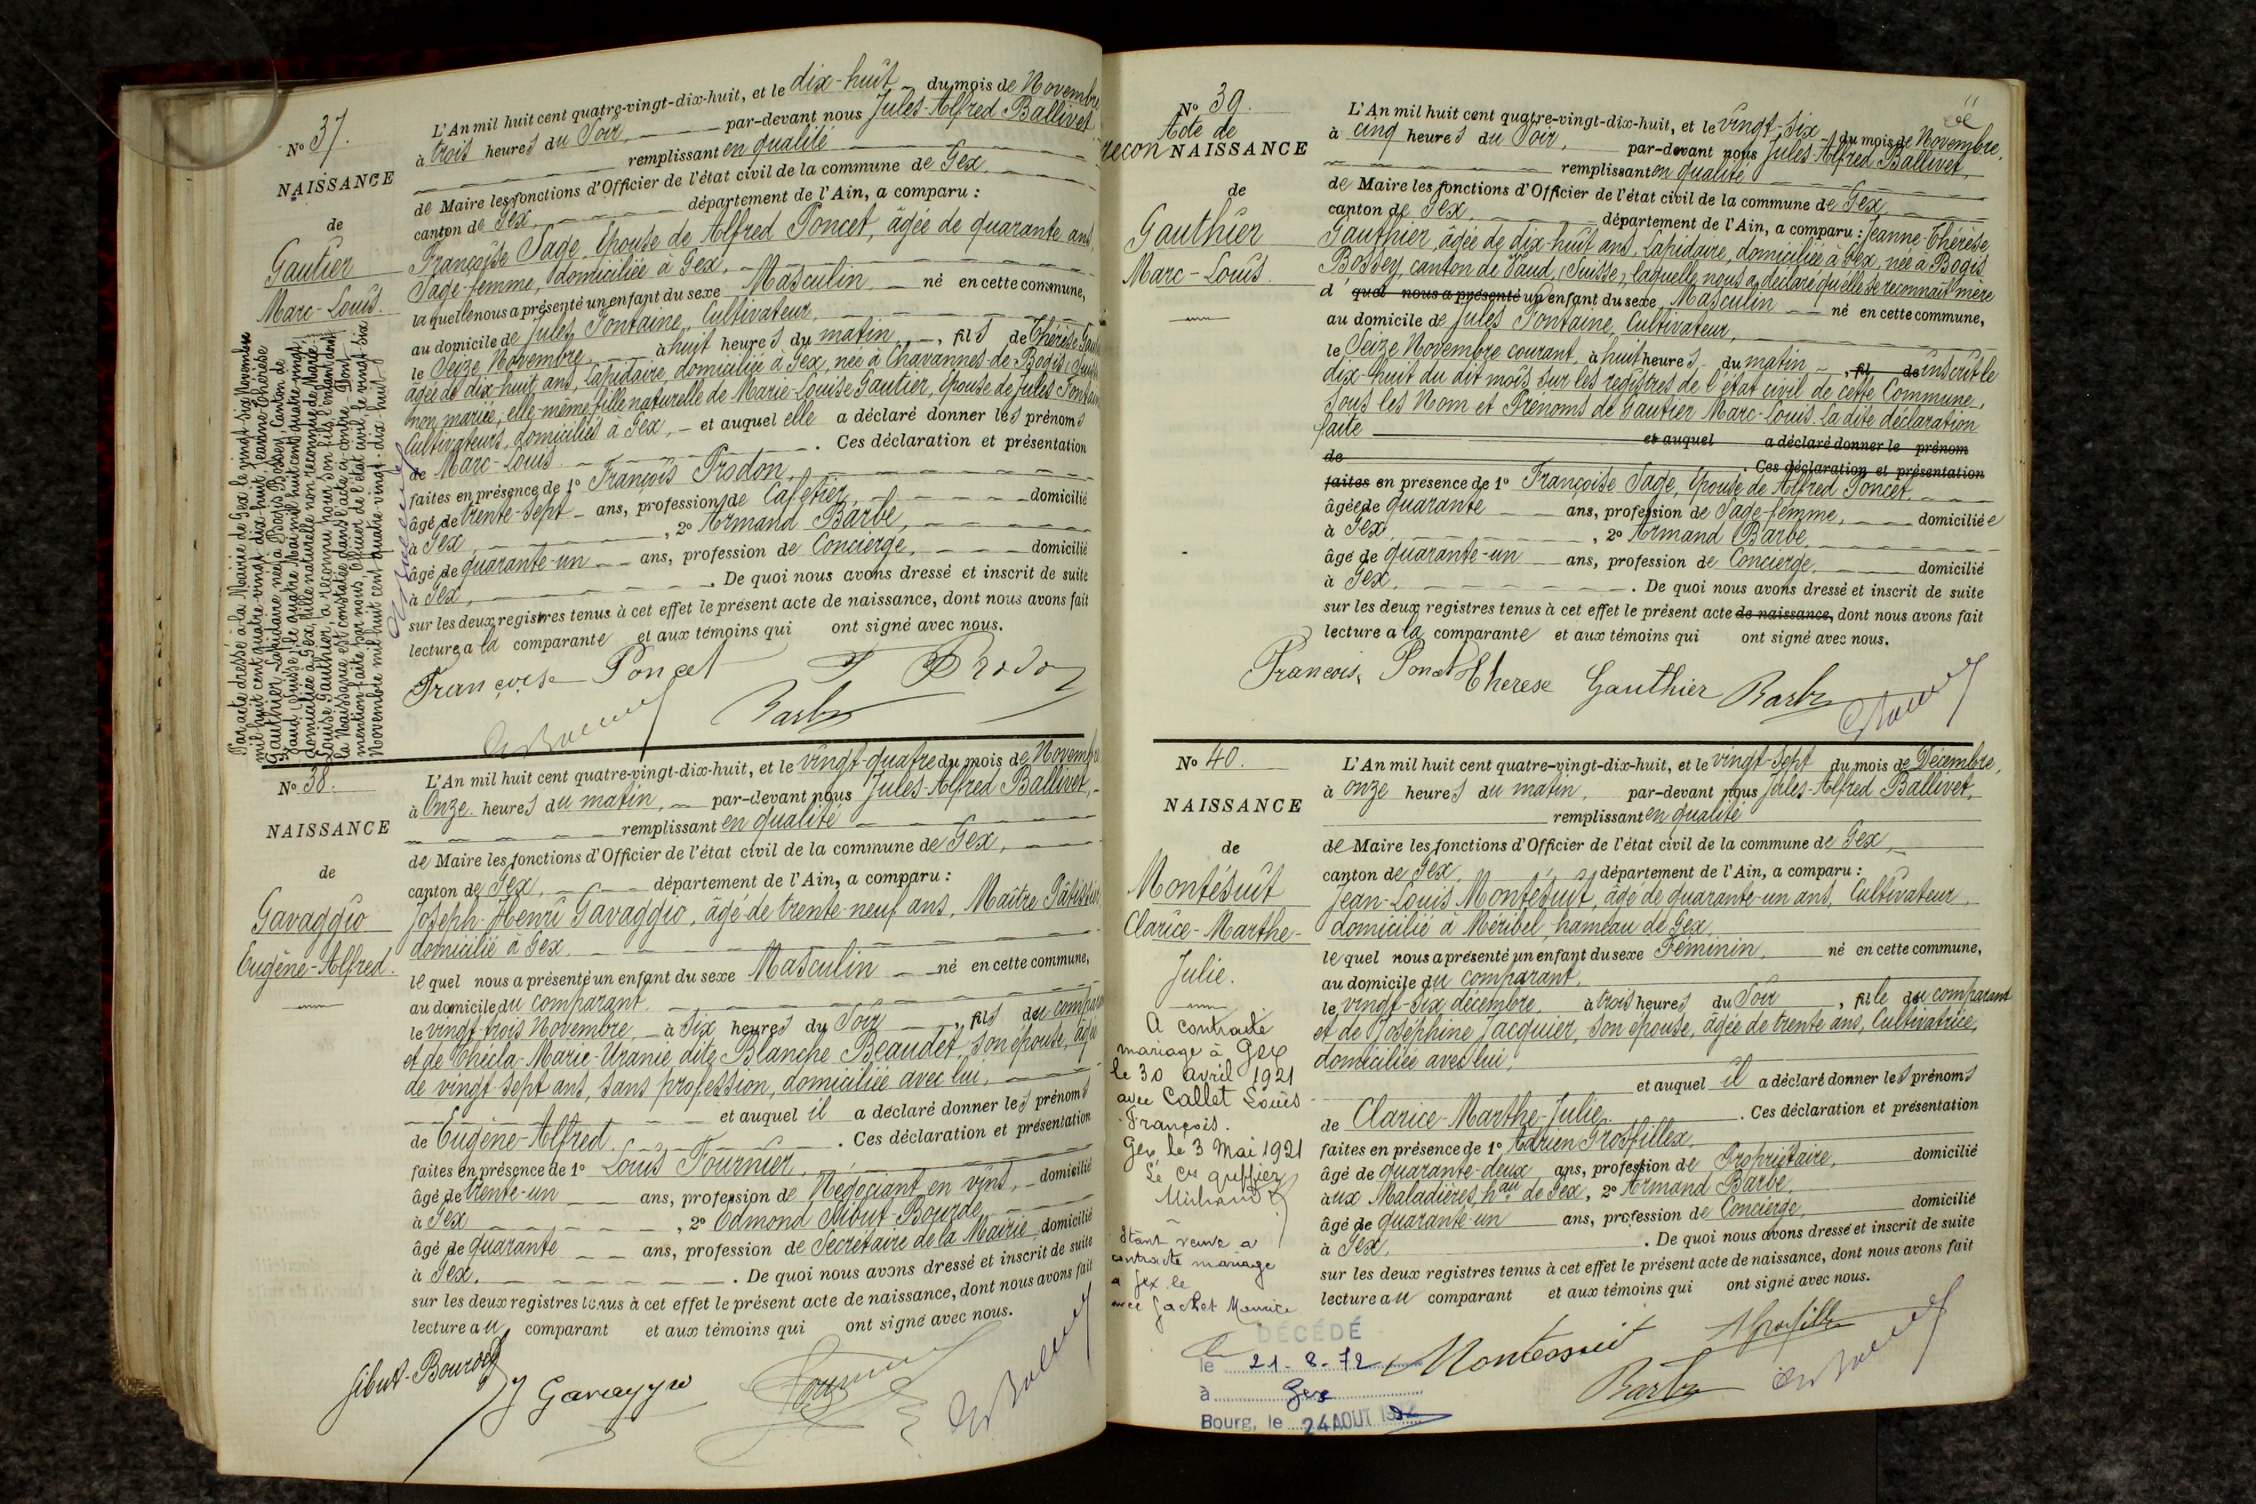 N° 37.
NAISSANCE
de
Gautier
Marc-Louis.
Par acte dressé à la Mairie de Gex le vingt-six Novembre
mil huit cent quatre-vingt-dix-huit, Jeanne-Thérèse
Gauthier, Lapidaire, née à Bogis Bossey, Canton de
Vaud (Suisse), le quatre Mai mil huit cent quatre-vingt,
domiciliée à Gex, fille naturelle non reconnue de Marie-
Louise Gauthier, a reconnu pour son fils, l'enfant dont
la Naissance est constatée dans l'acte ci-contre. Dont
mention faite par nous, Officier de l'état civil, le vingt-six
Novembre mil huit cent quatre-vingt-dix-huit.
L'An mil huit cent quatre-vingt-dix-huit, et le dix-huit du mois de Novembre
à trois heures du Soir, par-devant nous Jules-Alfred Ballivet
remplissant en qualité
de Maire les fonctions d'Officier de l'état civil de la commune de Gex,
canton de Gex, département de l'Ain, a comparu :
Françoise Sage, Epouse de Alfred Poncet, âgée de quarante ans,
Sage-femme, domiciliée à Gex,
laquelle nous a présenté un enfant du sexe Masculin né en cette commune,
au domicile de Jules Fontaine, Cultivateur,
le Seize Novembre, à huit heures du matin, fils de Thérèse
âgée de dix-huit ans, Lapidaire, domiciliée à Gex, née à Chavannes de-Bogis,
non mariée, elle-même fille naturelle de Marie-Louise Gautier, épouse de Jules
Cultivateurs, domiciliés à Gex, et auquel elle a déclaré donner les prénoms
de Marc-Louis. Ces déclaration et présentation
faites en présence de 1° François Prodon,
âgé de trente-sept ans, profession de Cafetier, domicilié
à Gex, 2° Armand Barbe,
âgé de quarante-un ans, profession de Concierge, domicilié
à Gex, De quoi nous avons dressé et inscrit de suite
sur les deux registres tenus à cet effet le présent acte de naissance, dont nous avons fait
lecture a la comparante et aux témoins qui ont signé avec nous.
Françoise Poncet
Barbe
N° 38.
NAISSANCE
de
Gavaggio
Eugène-Alfred.
L'An mil huit cent quatre-vingt-dix-huit, et le vingt-quatre du mois de
à Onze heures du matin, par-devant nous Jules-Alfred Ballivet,
remplissant en qualité
de Maire les fonctions d'Officier de l'état civil de la commune de Gex,
canton de Gex, département de l'Ain, a comparu :
Joseph-Henri Gavaggio, âgé de trente-neuf ans, Maître
domicilié à Gex.
le quel nous a présenté un enfant du sexe Masculin né en cette commune,
au domicile du comparant.
le vingt-trois Novembre, à Six heures du Soir, fils du
et de Thécla-Marie-Uranie, dite Blanche Beaudet, son épouse,
de vingt-sept ans, sans profession, domiciliée avec lui,
et auquel il a déclaré donner les prénoms
de Eugène-Alfred. Ces déclaration et présentation
faites en présence de 1° Louis Fournier,
âgé de trente-un ans, profession de Négociant en vins, domicilié
à Gex, 2° Edmond Gibut-Bourde
âgé de quarante ans, profession de Secrétaire de la Mairie, domicilié
à Gex. De quoi nous avons dressé et inscrit de suite
sur les deux registres tenus à cet effet le présent acte de naissance, dont nous avons fait
lecture au comparant et aux témoins qui ont signé avec nous.
Gibut-Bourde
J Gavaggio
N° 39.
Acte de
recon NAISSANCE
de
Gauthier
Marc-Louis.
L'An mil huit cent quatre-vingt-dix-huit, et le vingt-six du mois de Novembre,
à cinq heures du Soir, par-devant nous Jules-Alfred Ballivet,
remplissant en qualité
de Maire les fonctions d'Officier de l'état civil de la commune de Gex,
canton de Gex, département de l'Ain, a comparu : Jeanne-Thérèse
Gauthier, âgée de dix-huit ans, Lapidaire, domiciliée à Gex, née à Bogis
Bossey, canton de Vaud, (Suisse), laquelle nous a déclaré qu'elle se reconnaît mère
d' quel nous a présenté un enfant du sexe Masculin né en cette commune,
au domicile de Jules Fontaine, Cultivateur,
le Seize Novembre courant, à huit heures du matin, fil de inscrit le
dix-huit du dit mois sur les registres de l'état civil de cette Commune,
sous les Nom et Prénoms de Gautier Marc-Louis. La dite déclaration
faite et auquel a déclaré donner le prénom
de . Ces déclaration et présentation
faites en présence de 1° Françoise Sage, Epouse de Alfred Poncet
âgée de quarante ans, profession de Sage-femme, domiciliée
à Gex, 2° Armand Barbe,
âgé de quarante-un ans, profession de Concierge, domicilié
à Gex. De quoi nous avons dressé et inscrit de suite
sur les deux registres tenus à cet effet le présent acte de naissance, dont nous avons fait
lecture a la comparante et aux témoins qui ont signé avec nous.
Therese Gauthier Barbe
N° 40.
NAISSANCE
de
Montésuit
Clarice-Marthe-
Julie.
A contracté
mariage à Gex
le 30 avril 1921
avec Callet Louis
François.
Gex, le 3 Mai 1921
Le Cis greffier
Etant veuve a
contracté mariage
a Gex le
avec Gachet Maurice
DÉCÉDÉ
le 21-8-72
à Gex
Bourg, le 24 AOUT
L'An mil huit cent quatre-vingt-dix-huit, et le vingt-sept du mois de Décembre,
à onze heures du matin, par-devant nous Jules-Alfred Ballivet,
remplissant en qualité
de Maire les fonctions d'Officier de l'état civil de la commune de Gex,
canton de Gex, département de l'Ain, a comparu :
Jean-Louis Montésuit, âgé de quarante-un ans, Cultivateur,
domicilié à Méribel, hameau de Gex,
le quel nous a présenté un enfant du sexe Féminin, né en cette commune,
au domicile du comparant.
le vingt-six décembre, à trois heures du Soir, fille du comparant
et de Joséphine Jacquier, son épouse, âgée de trente ans, Cultivatrice,
domiciliée avec lui,
et auquel il a déclaré donner les prénoms
de Clarice-Marthe-Julie. Ces déclaration et présentation
faites en présence de 1° Adrien Grosfillex,
âgé de quarante-deux ans, profession de Propriétaire, domicilié
aux Maladières, hau de Gex, 2° Armand Barbe,
âgé de quarante-un ans, profession de Concierge, domicilié
à Gex. De quoi nous avons dressé et inscrit de suite
sur les deux registres tenus à cet effet le présent acte de naissance, dont nous avons fait
lecture au comparant et aux témoins qui ont signé avec nous.
Montesuit
Barbe